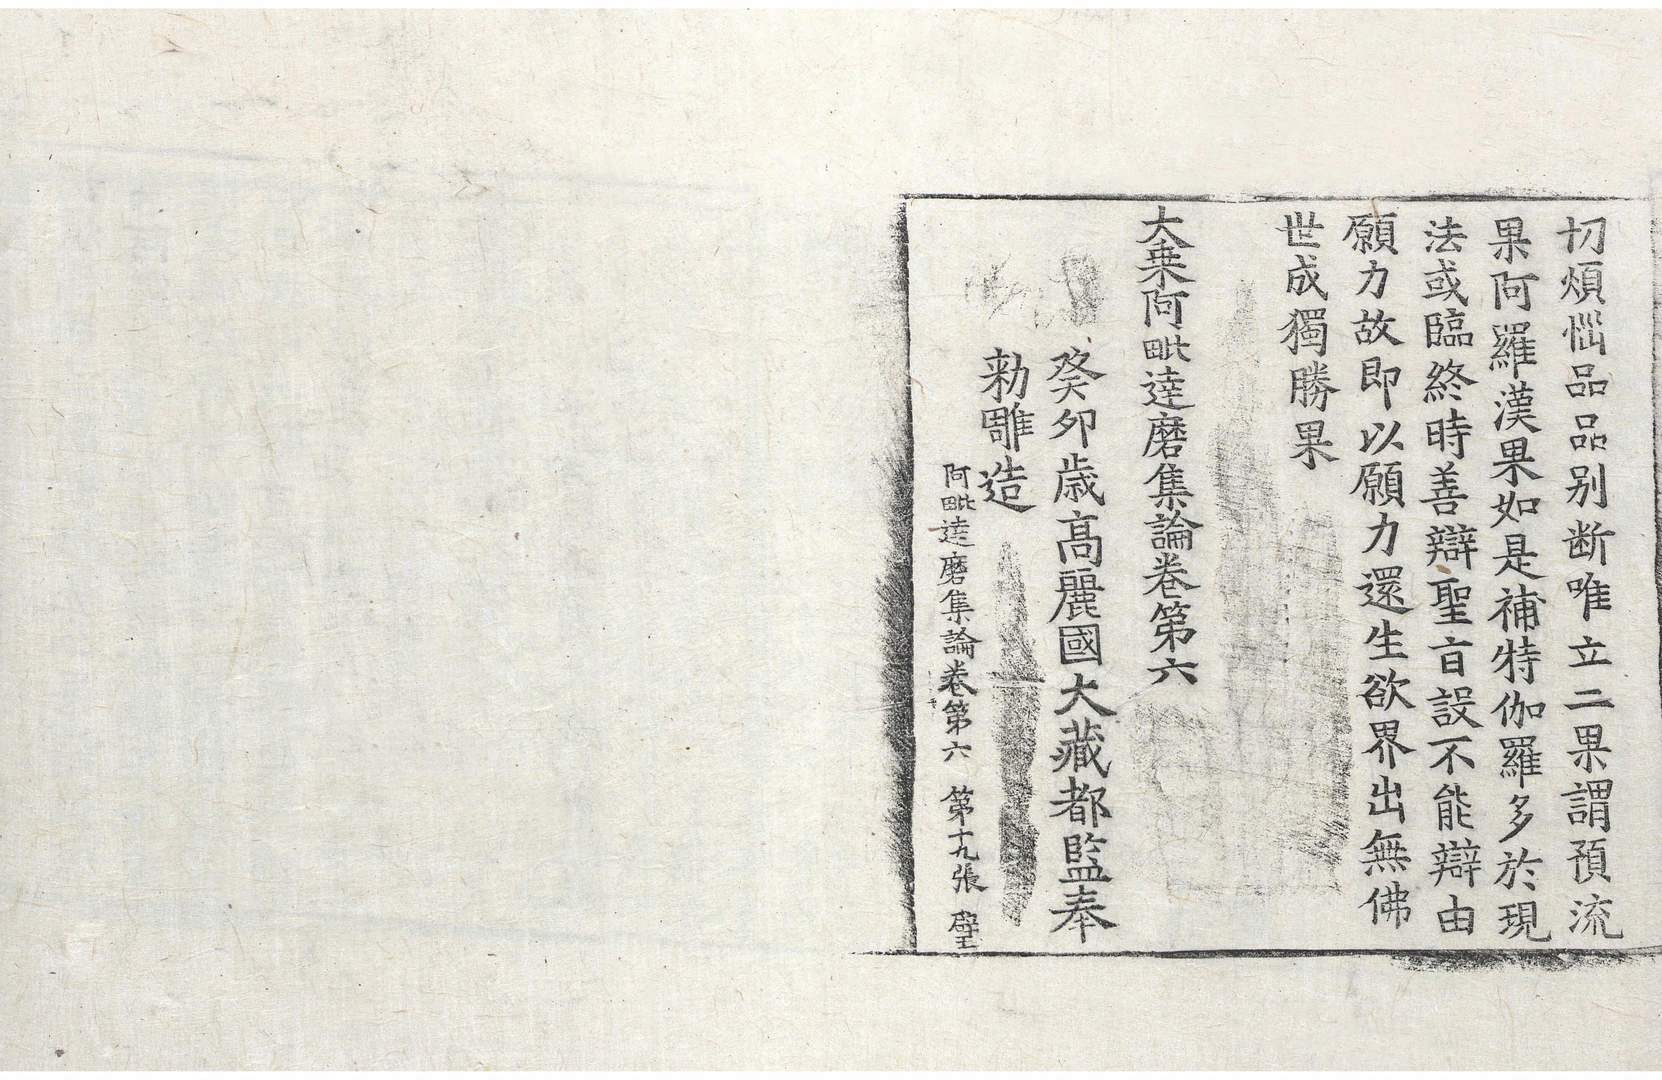 切煩惱品品別断唯立二果謂預流
果阿羅漢果如是補特伽羅多於現
法或臨終時善辯聖旨設不能辯由
願力故即以願力還生欲界出無佛
世成獨勝果
大乗阿毗達磨集論卷第六
癸卯歲高麗國大藏都監奉
勑雕造
阿毗達磨集論卷第六 第十九張 璧